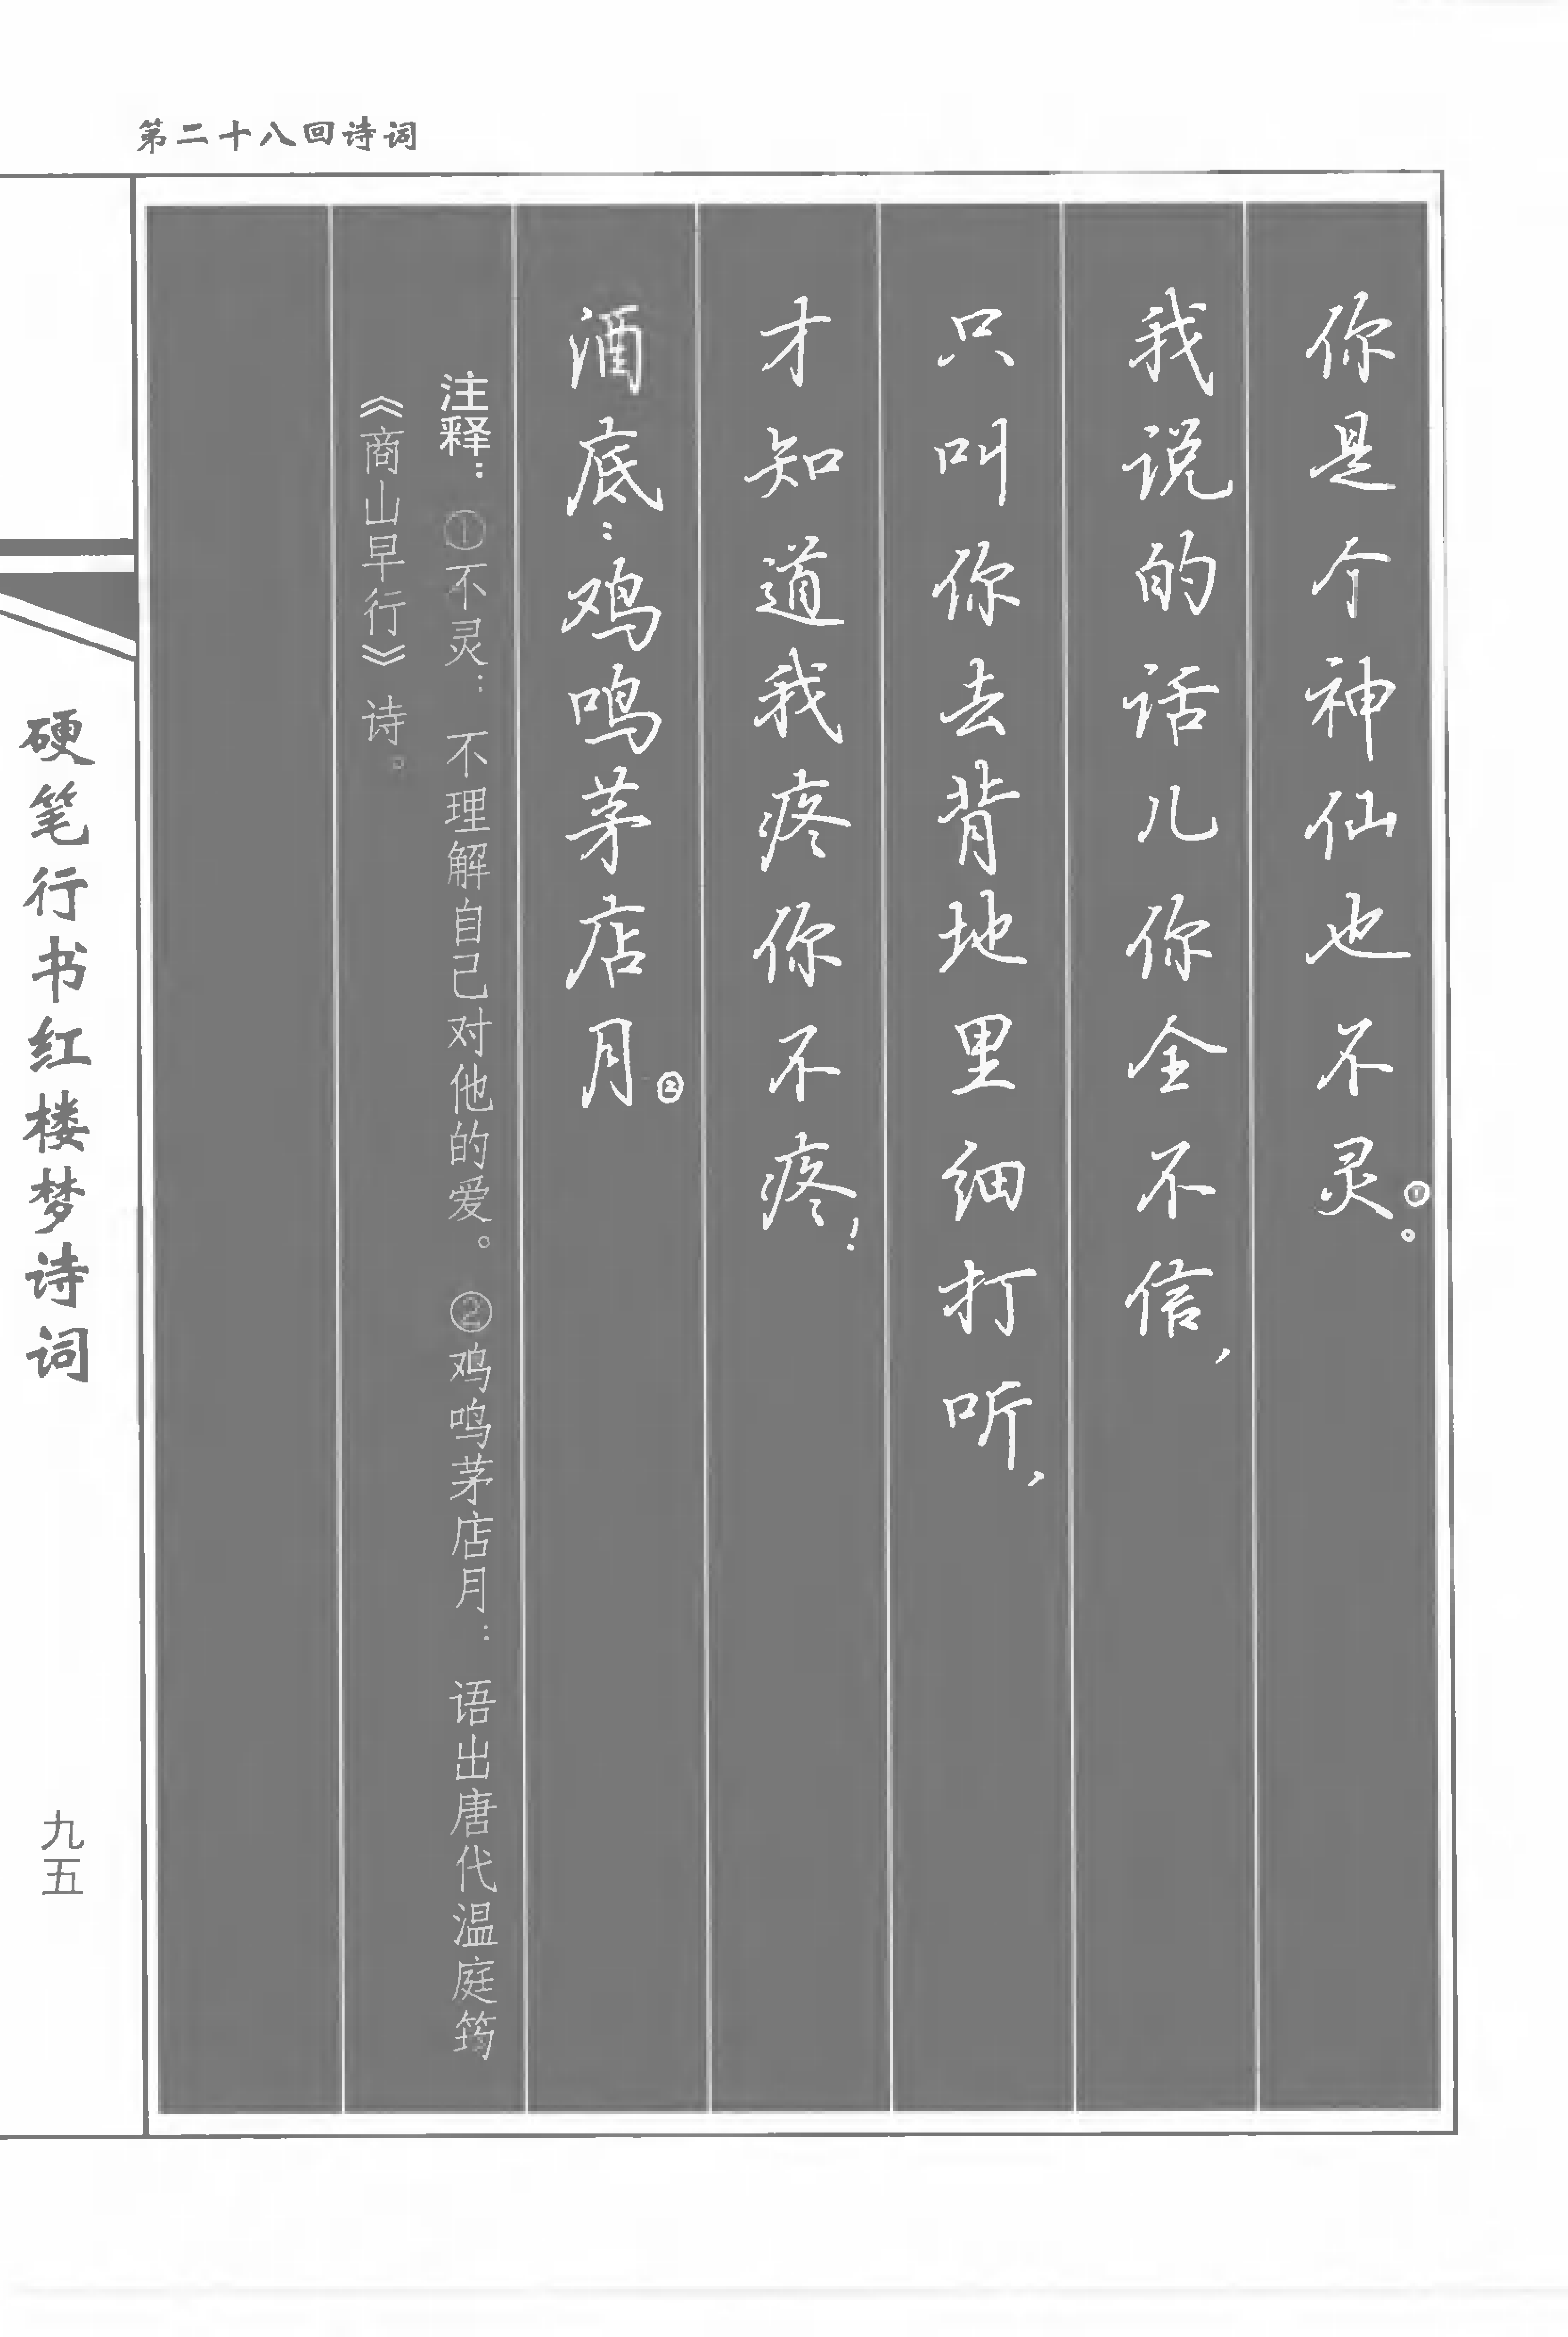 第二十八回诗词
你是个神仙也不灵①。
我说的话儿你全不信，
只叫你去背地里细打听，
才知道我疼你不疼！
酒底：鸡鸣茅店月②
注释：①不灵：不理解自己对他的爱。②鸡鸣茅店月：语出唐代温庭筠
《商山早行》诗。
硬笔行书红楼梦诗词
九五